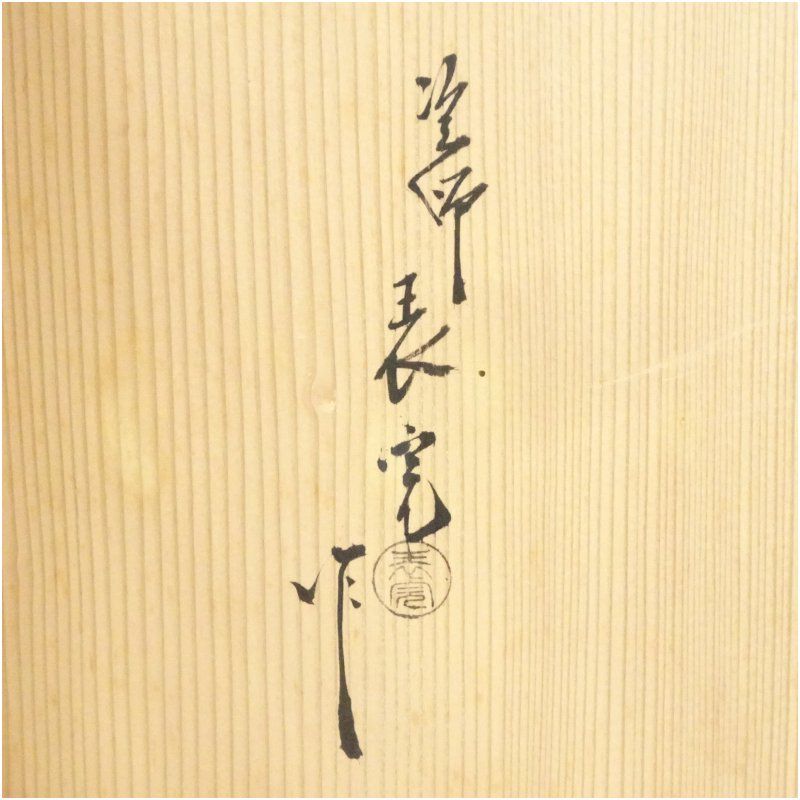 塗師 表完
作
表完